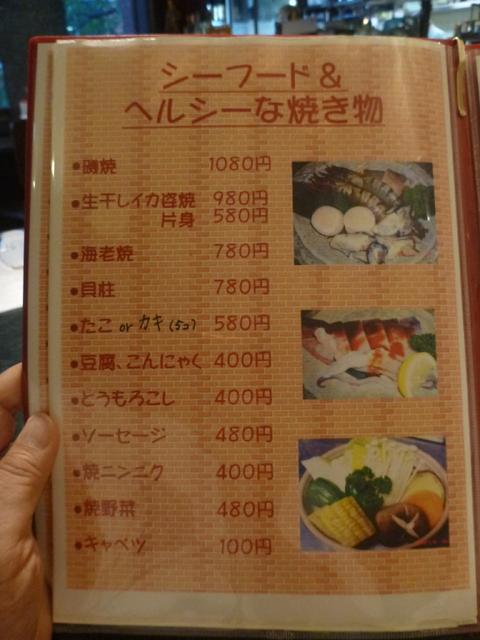 シーフード&
ヘルシーな焼き物
●磯焼 1080円
●生干しイカ姿焼 980円
片身 580円
●海老焼 780円
●貝柱 780円
●たこ or カキ (5コ) 580円
●豆腐、こんにゃく 400円
●とうもろこし 400円
●ソーセージ 480円
●焼ニンニク 400円
●焼野菜 480円
●キャベツ 100円